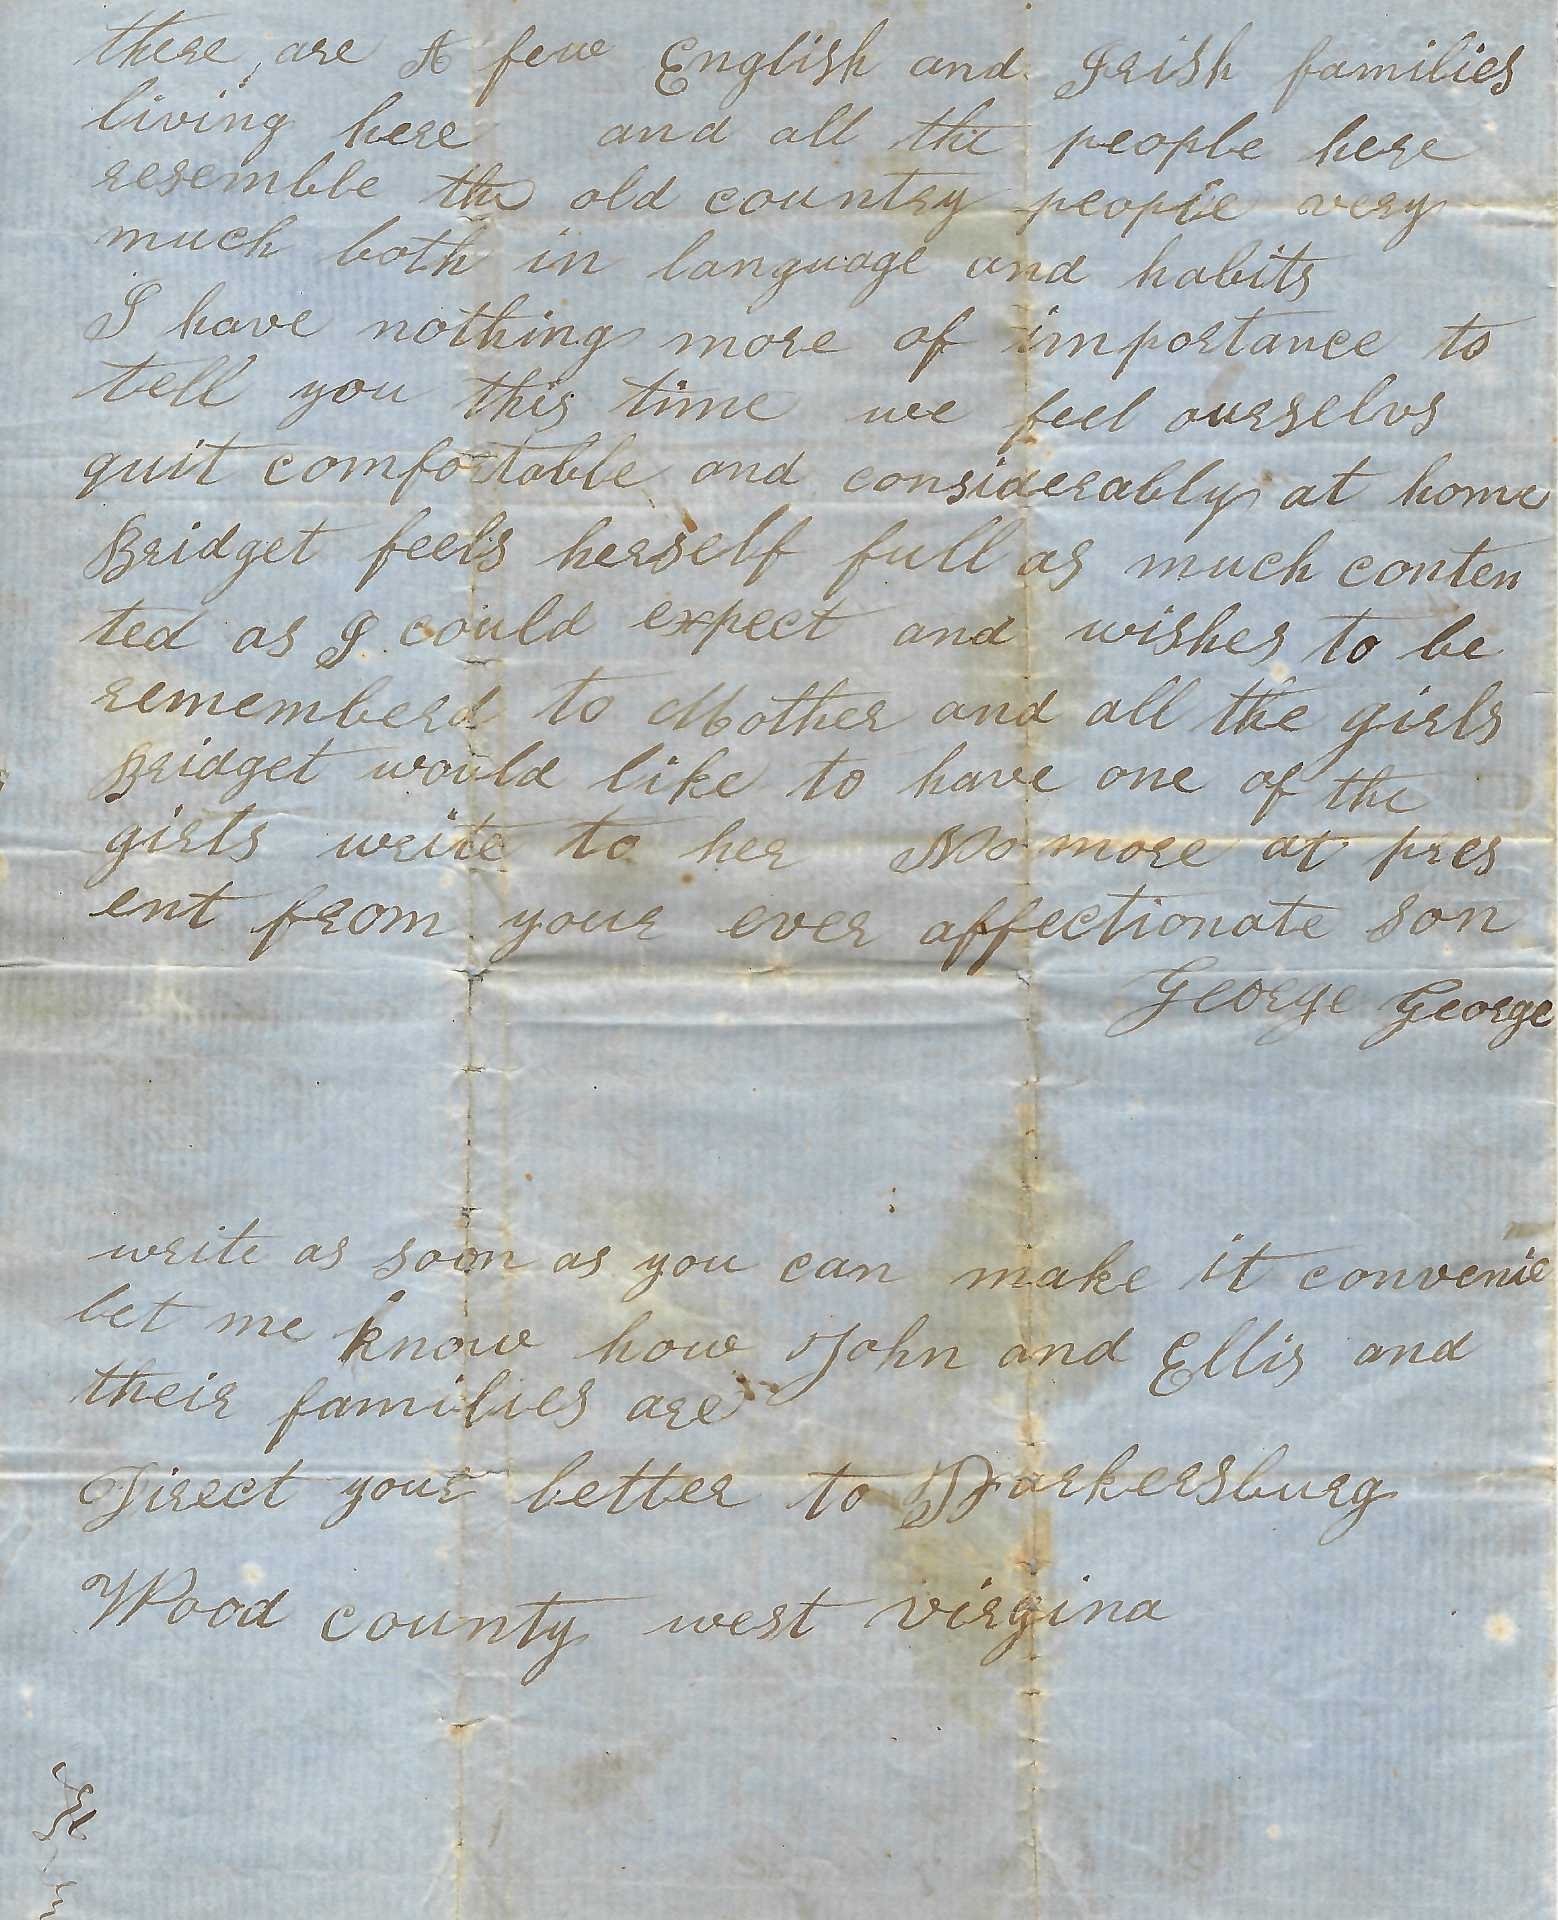 there are A few English and Irish families
living here and all the people here
resemble the old country people very
much both in language and habits
I have nothing more of importance to
tell you this time we feel ourselvs
quit comfortable and considerably at home
Bridget feels herself full as much conten
ted as I could expect and wishes to be
rememberd to Mother and all the girls
Bridget would like to have one of the
girls write to her No more at pres
ent from your ever affectionate son
George George
write as soon as you can make it convenie
let me know how John and Ellis and
their families are
Direct your letter to Parkersburg
Wood county west virgina